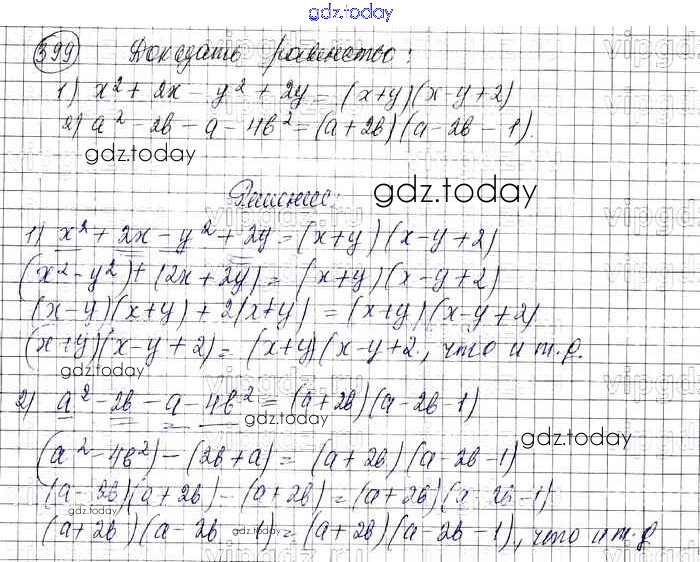 gdz.today
399 Доказать равенство:
1) x² + 2x - y² + 2y = (x+y)(x-y+2)
2) a² - 2b - a - 4b² = (a+2b)(a-2b-1).
gdz.today
Решение:
gdz.today
1) x² + 2x - y² + 2y = (x+y)(x-y+2)
(x²-y²) + (2x+2y) = (x+y)(x-y+2)
(x-y)(x+y) + 2(x+y) = (x+y)(x-y+2)
(x+y)(x-y+2) = (x+y)(x-y+2, что и т.д.
gdz.today
2) a² - 2b - a - 4b² = (a+2b)(a-2b-1)
gdz.today
gdz.today
(a²-4b²) - (2b+a) = (a+2b)(a-2b-1)
(a-2b)(a+2b) - (a+2b) = (a+2b)(a-2b-1)
gdz.today
gdz.today
(a+2b)(a-2b-1) = (a+2b)(a-2b-1), что и т.д